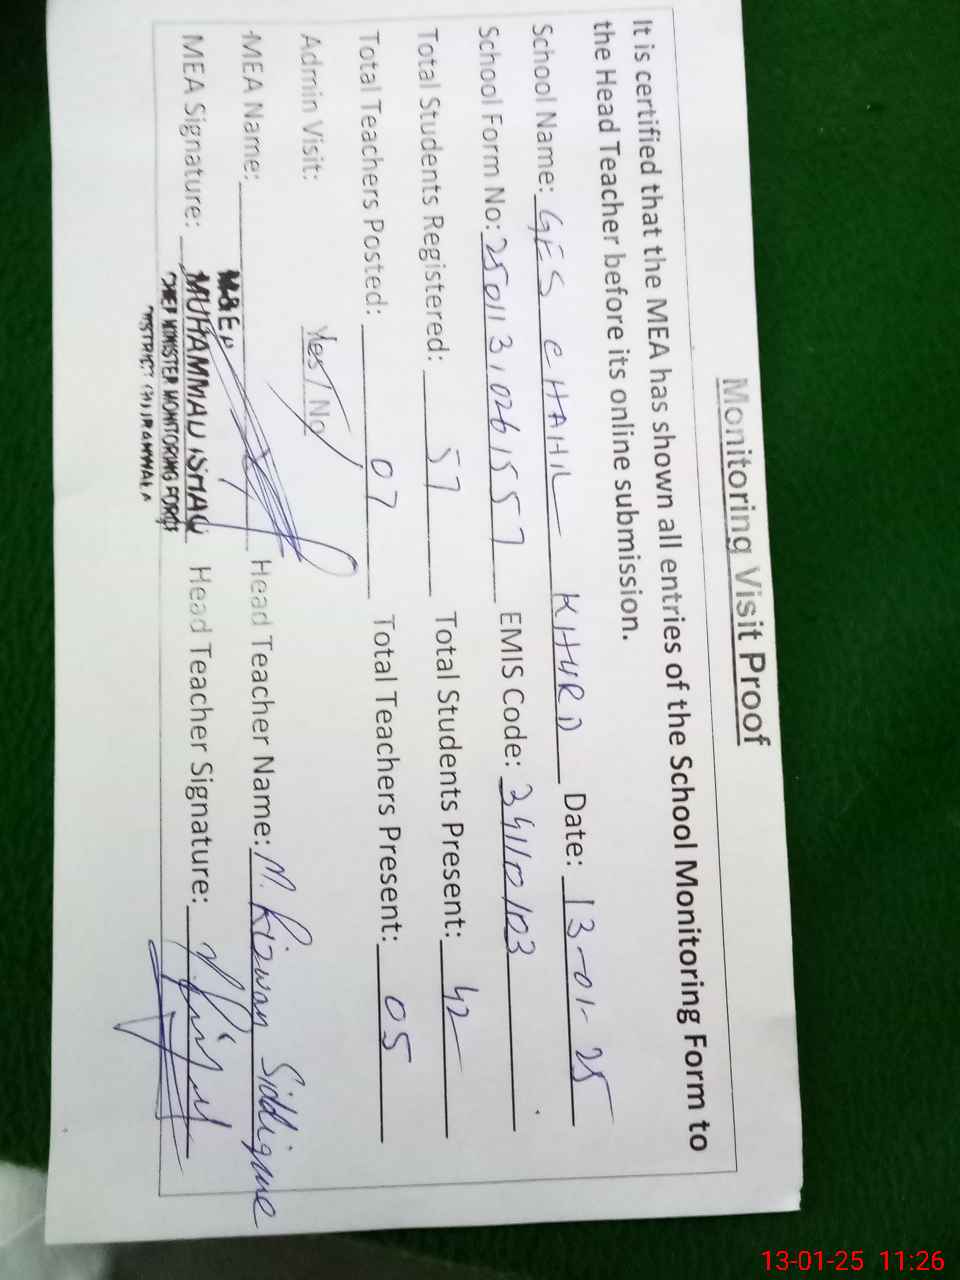 Monitoring Visit Proof
It is certified that the MEA has shown all entries of the School Monitoring Form to
the Head Teacher before its online submission.
School Name: GES CHAHIL KHURD Date: 13-01-25
School Form No: 250113102615 57 EMIS Code: 34110103
Total Students Registered: 57 Total Students Present: 42
Total Teachers Posted: 07 Total Teachers Present: 05
Admin Visit: Yes / No
MEA Name: Head Teacher Name: M. Rizwan Siddique
MEA Signature: Head Teacher Signature:
MUHAMMAD ISMAIL
CHIEF MINISTER MONITORING FORCE
DISTRICT GUJRANWALA
13-01-25 11:26